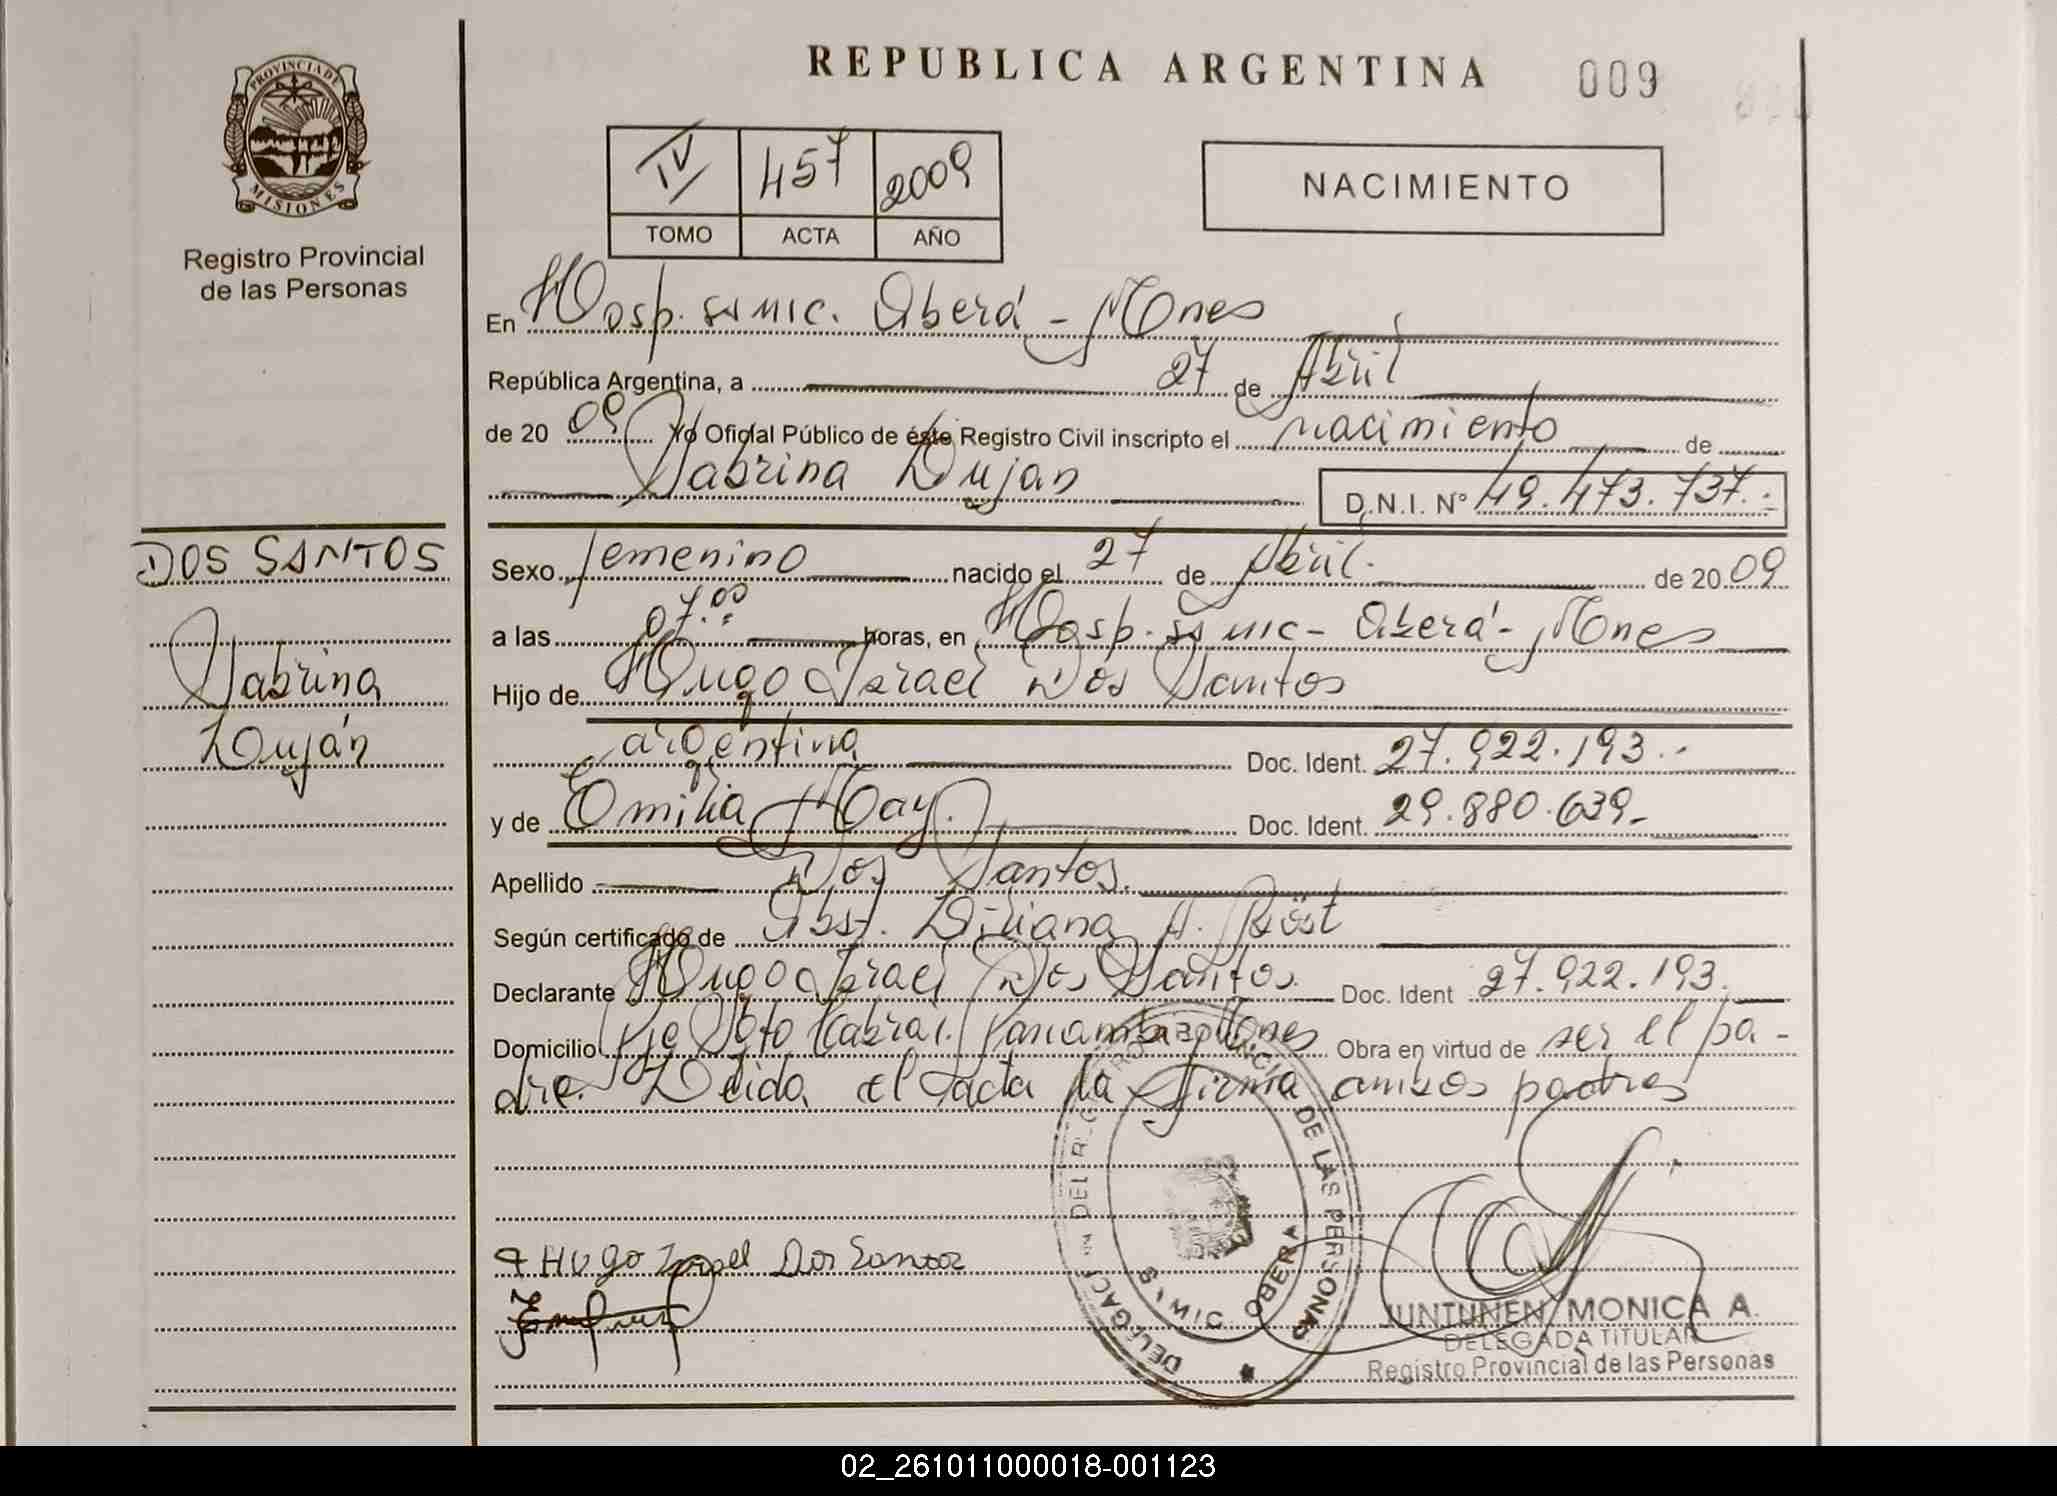 REPUBLICA ARGENTINA 009
PROVINCIA DE MISIONES
Registro Provincial
de las Personas
IV 457 2009
TOMO ACTA AÑO
NACIMIENTO
En Hosp. samic. Oberá - Mnes
República Argentina, a 27 de Abril
de 2009 Yo Oficial Público de éste Registro Civil inscripto el nacimiento de
Sabrina Lujan D.N.I. Nº 49.473.737.-
DOS SANTOS
Sabrina
Luján
Sexo femenino nacido el 27 de Abril. de 2009
a las 07:00 horas, en Hosp. samic - Oberá - Mnes
Hijo de Hugo Israel Dos Santos
argentina Doc. Ident. 27.922.193.-
y de Emilia May. Doc. Ident. 29.880.639-
Apellido Dos Santos.
Según certificado de Obst. Liliana A. Röst
Declarante Hugo Israel Dos Santos. Doc. Ident 27.922.193.
Domicilio Pje Soto Cabral. Panambi. Mnes Obra en virtud de ser el pa-
dre. Leida el acta la firma ambos padres
Hugo Israel Dos Santos
DELEGACION DEL REGISTRO PROVINCIAL DE LAS PERSONAS
OBERA
JUNTUNEN MONICA A.
DELEGADA TITULAR
Registro Provincial de las Personas
02_261011000018-001123